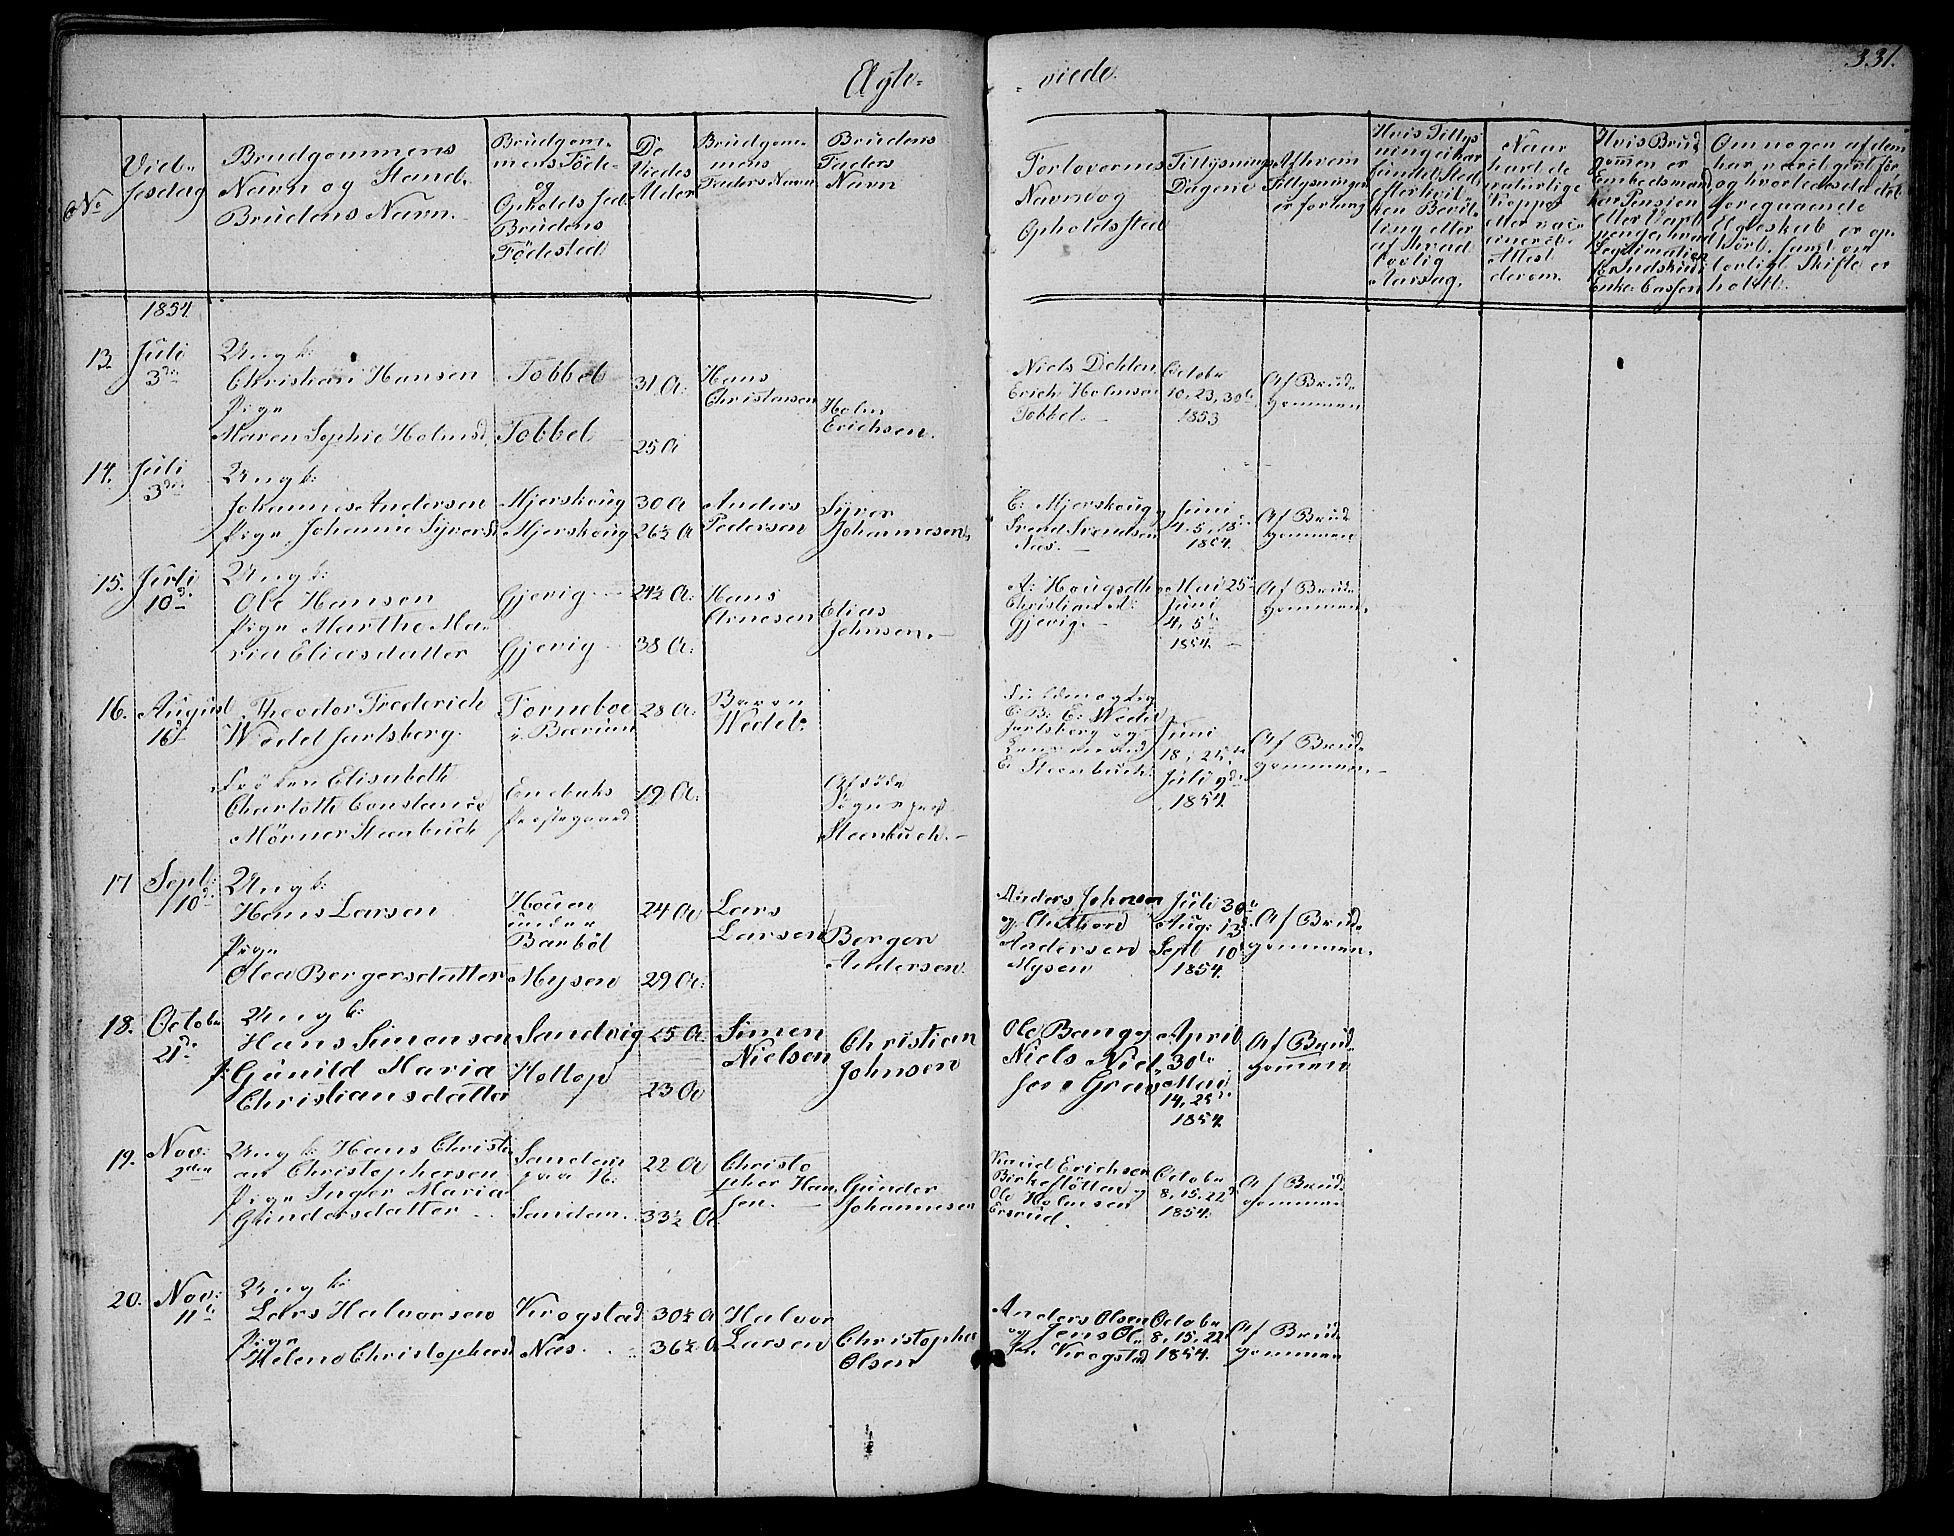 331.
Ægte- -viede.
No
Viel-
sesdag
Brudgommens
Navn og Stand.
Brudens Navn.
Brudgom-
mens Føde-
og
Opholds sted
Brudens
Fødested
De
Viedes
Alder
Brudgom-
mens
Faders Navn
Brudens
Faders
Navn
Forlovernes
Navn og
Opholdssted
Tillysnings
Dagene
Af hvem
Tillysningen
er forlangt
Hvis Tillys
ning ei har
fundet Sted
efter hvil-
ken Bevil-
ling eller
af hvad
lovlig
Aarsag.
Naar
havde de
naturlige
Kopper
eller vac-
cinerede
Attest
derom.
Hvis Brud
gommen er
Embedsmand
har Pension
eller Vart-
penge hvad
Legitimation
for Indskud i
Enke-Cassen
Om nogen af dem
har været gift før
og hvorledes da det
foregaaende
Ægteskab er op-
hørt, samt om
lovligt Skifte er
holdt.
1854.
13. Juli
3die
Ungk:
Christian Hansen
Pige
Maren Sophie Holmsd.
Tobbel
Tobbel
31 A:
25 A
Hans
Christensen
Holm
Erichsen.
Niels Dehlen
Erich Holmsen
Tobbel.
Octobr
10, 23, 30te
1853
Af Brud-
gommen
14. Juli
3die
Ungk:
Johannes Andersen
Pige Johanne Syversd.
Mjerskoug
Mjerskoug
30 A
26½ A
Anders
Pedersen
Syver
Johannesen
E. Mjerskoug
Svend Svendsen
Næs.
Juni
4, 5, 18de
1854.
Af Brud-
gommen
15. Juli
10de
Ungk:
Ole Hansen
Pige Marthe Ma-
ria Eliasdatter
Gjevig
Gjevig
24½ A:
38 A:
Hans
Arnesen
Elias
Johnsen.
A: Hougseth
Christian
Gjevig.
Mai 25de
Juni
4, 5te
1854.
Af Brud-
gommen.
16. August
16de
Theodor Frederich
Wedel Jarlsberg.
Frøken Elisabeth
Charlotte Constance
Mörner Steenbuch
Torneboe
i Bærum
Enebaks
Præstegaard
28 A:
19 A:
Baron
Wedel.
Afdøde
Sogneprest
Steenbuch.
E: B: E: Wedel
Jarlsberg og
E: Steenbuch.
Juni
18, 25de
Juli 9de
1854.
Af Brud-
gommen.
17 Sept:
10de
Ungk:
Hans Larsen
Pige
Olea Bergersdatter
Houen
under
Barbøl
Mysen
24 A
29 A:
Lars
Larsen
Berger
Andersen.
Anders Johnsen
og Anthon
Andersen
Mysen
Juli 30te
Aug: 13de
Sept 10
1854.
Af Brud-
gommen.
18. Octobr
21de
Ungk:
Hans Simensen
P: Gunild Maria
Christiansdatter
Sandvig
Holtop
25 A:
23 A
Simen
Nielsen
Christian
Johnsen
Ole Bang og
Niels Niel-
sen Grav
April
30te
Mai
14, 25de
1854.
Af Brud-
gommen
19. Nov:
2den
Ungk: Hans Christi-
an Christophersen
Pige Inger Maria
Gundersdatter
Sandem
paa H:
Sandem.
22 A
33½ A
Christo
pher Han-
sen.
Gunder
Johannesen
Knud Erichsen
Birkesløtten og
Ole Holmsen
Ersrud.
Octobr
8, 15, 22de
1854.
Af Brud-
gommen
20. Nov:
11te
Ungk:
Lars Halvorsen
Pige
Helene Christophersd
Krogstad
Næs.
30½ A
36½ A
Halvor
Larsen
Christopher
Olsen
Anders Olsen
og Jens Ol-
sen Krogstad
Octobr
8, 15, 22de
1854.
Af Brud-
gommen